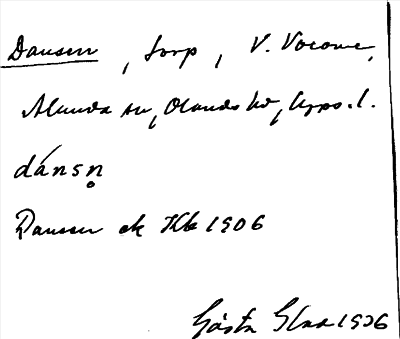 Dansen, torp, V. Vocome,
Alunda sn, Olands hd, Upps. l.
dánsn̥
Dansen ek Hk 1906
Gösta Glas 1936